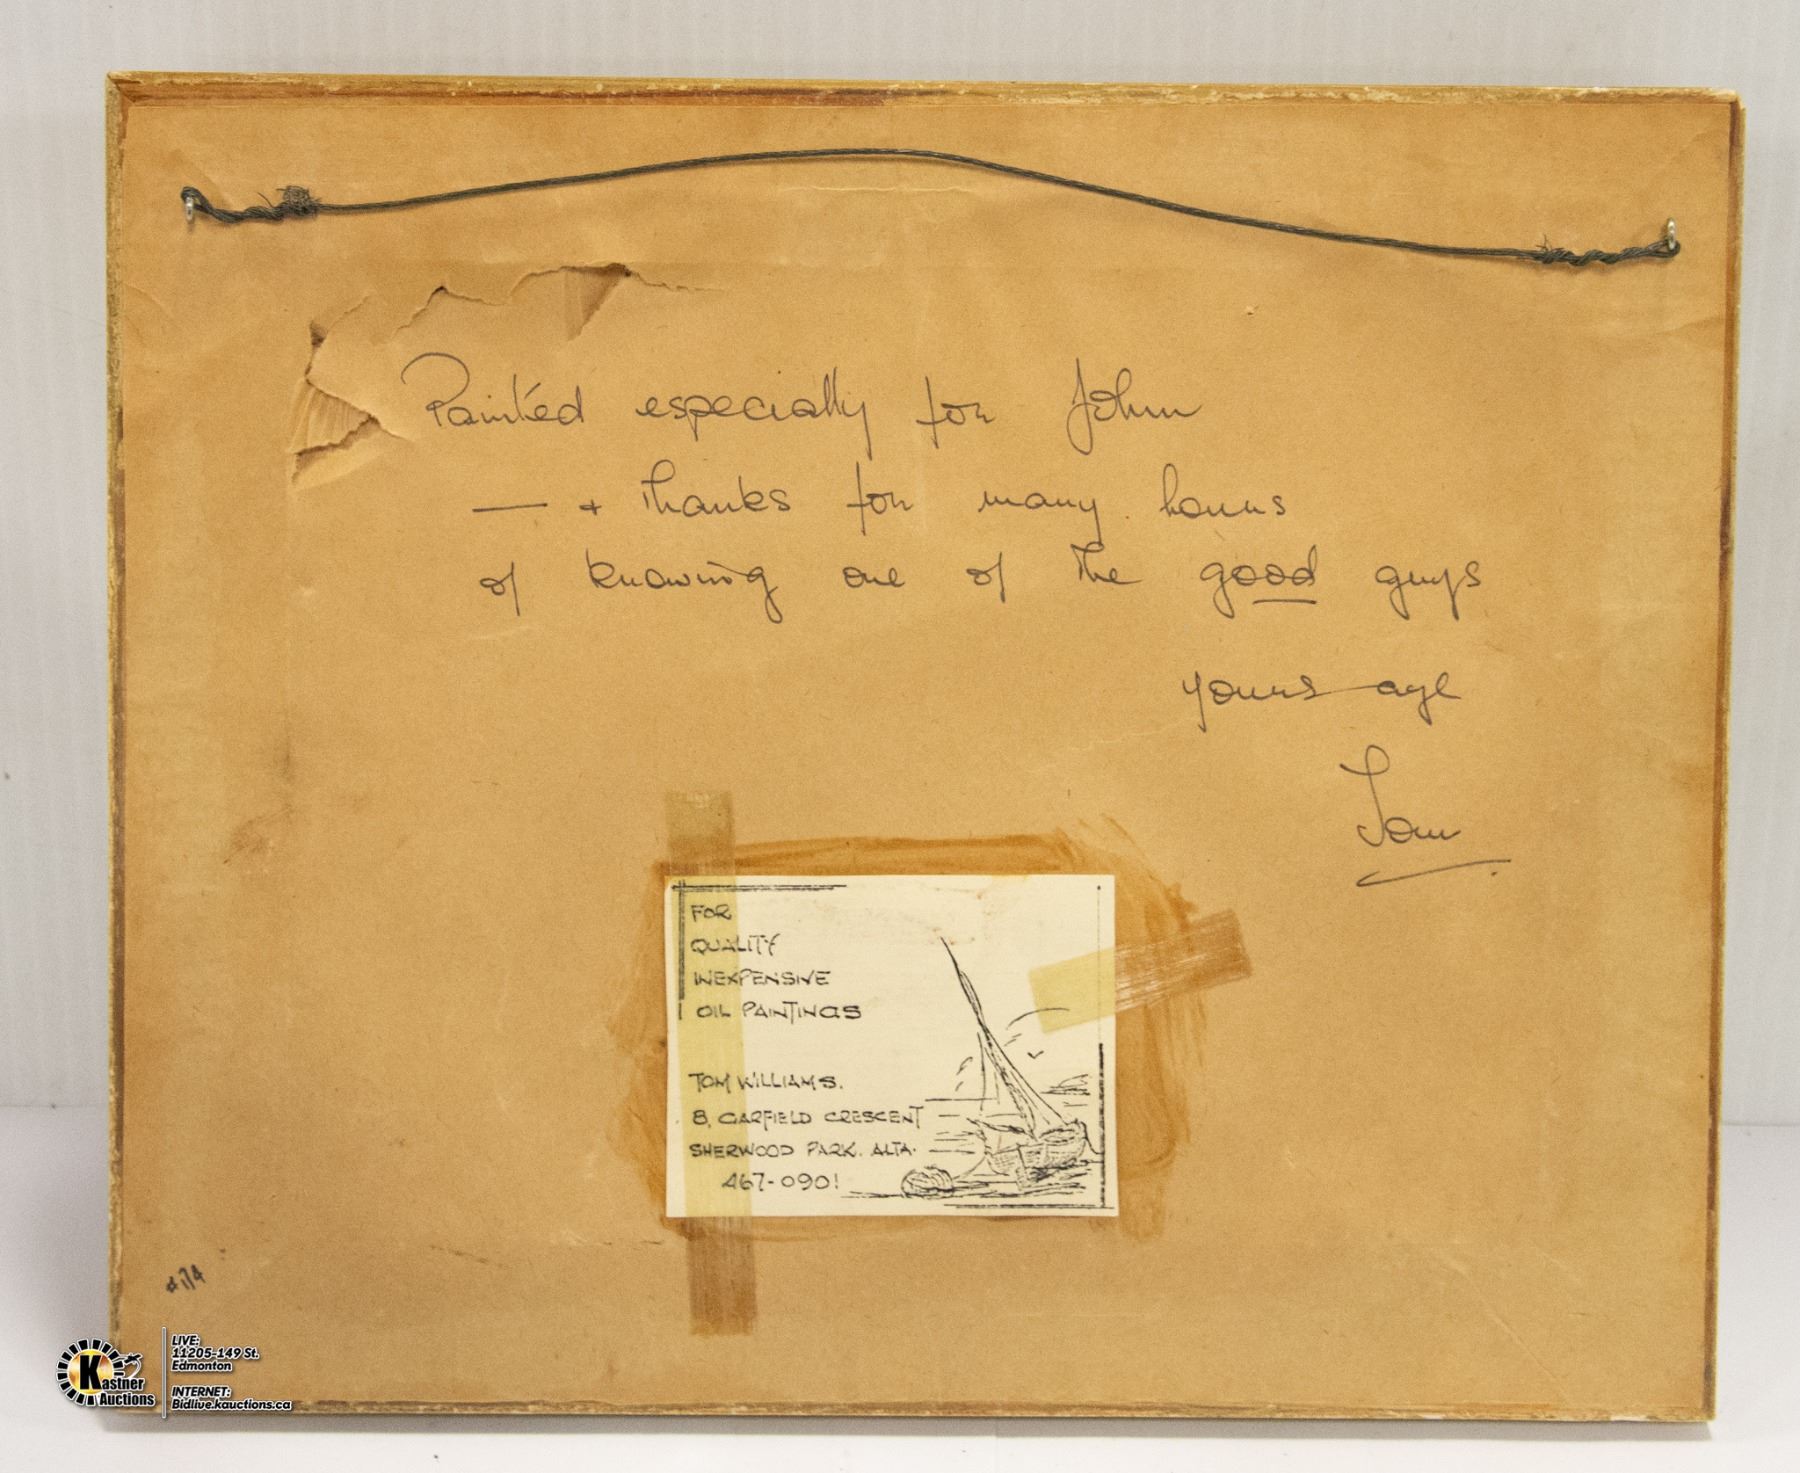 Painted especially for John
— + Thanks for many hours
of knowing one of the good guys
yours aye
Tom
FOR
QUALITY
INEXPENSIVE
OIL PAINTINGS
TOM WILLIAMS.
8, GARFIELD CRESCENT
SHERWOOD PARK. ALTA.
467-0901
Kastner
Auctions
LIVE:
11205-149 St.
Edmonton
INTERNET:
Bidlive.kauctions.ca